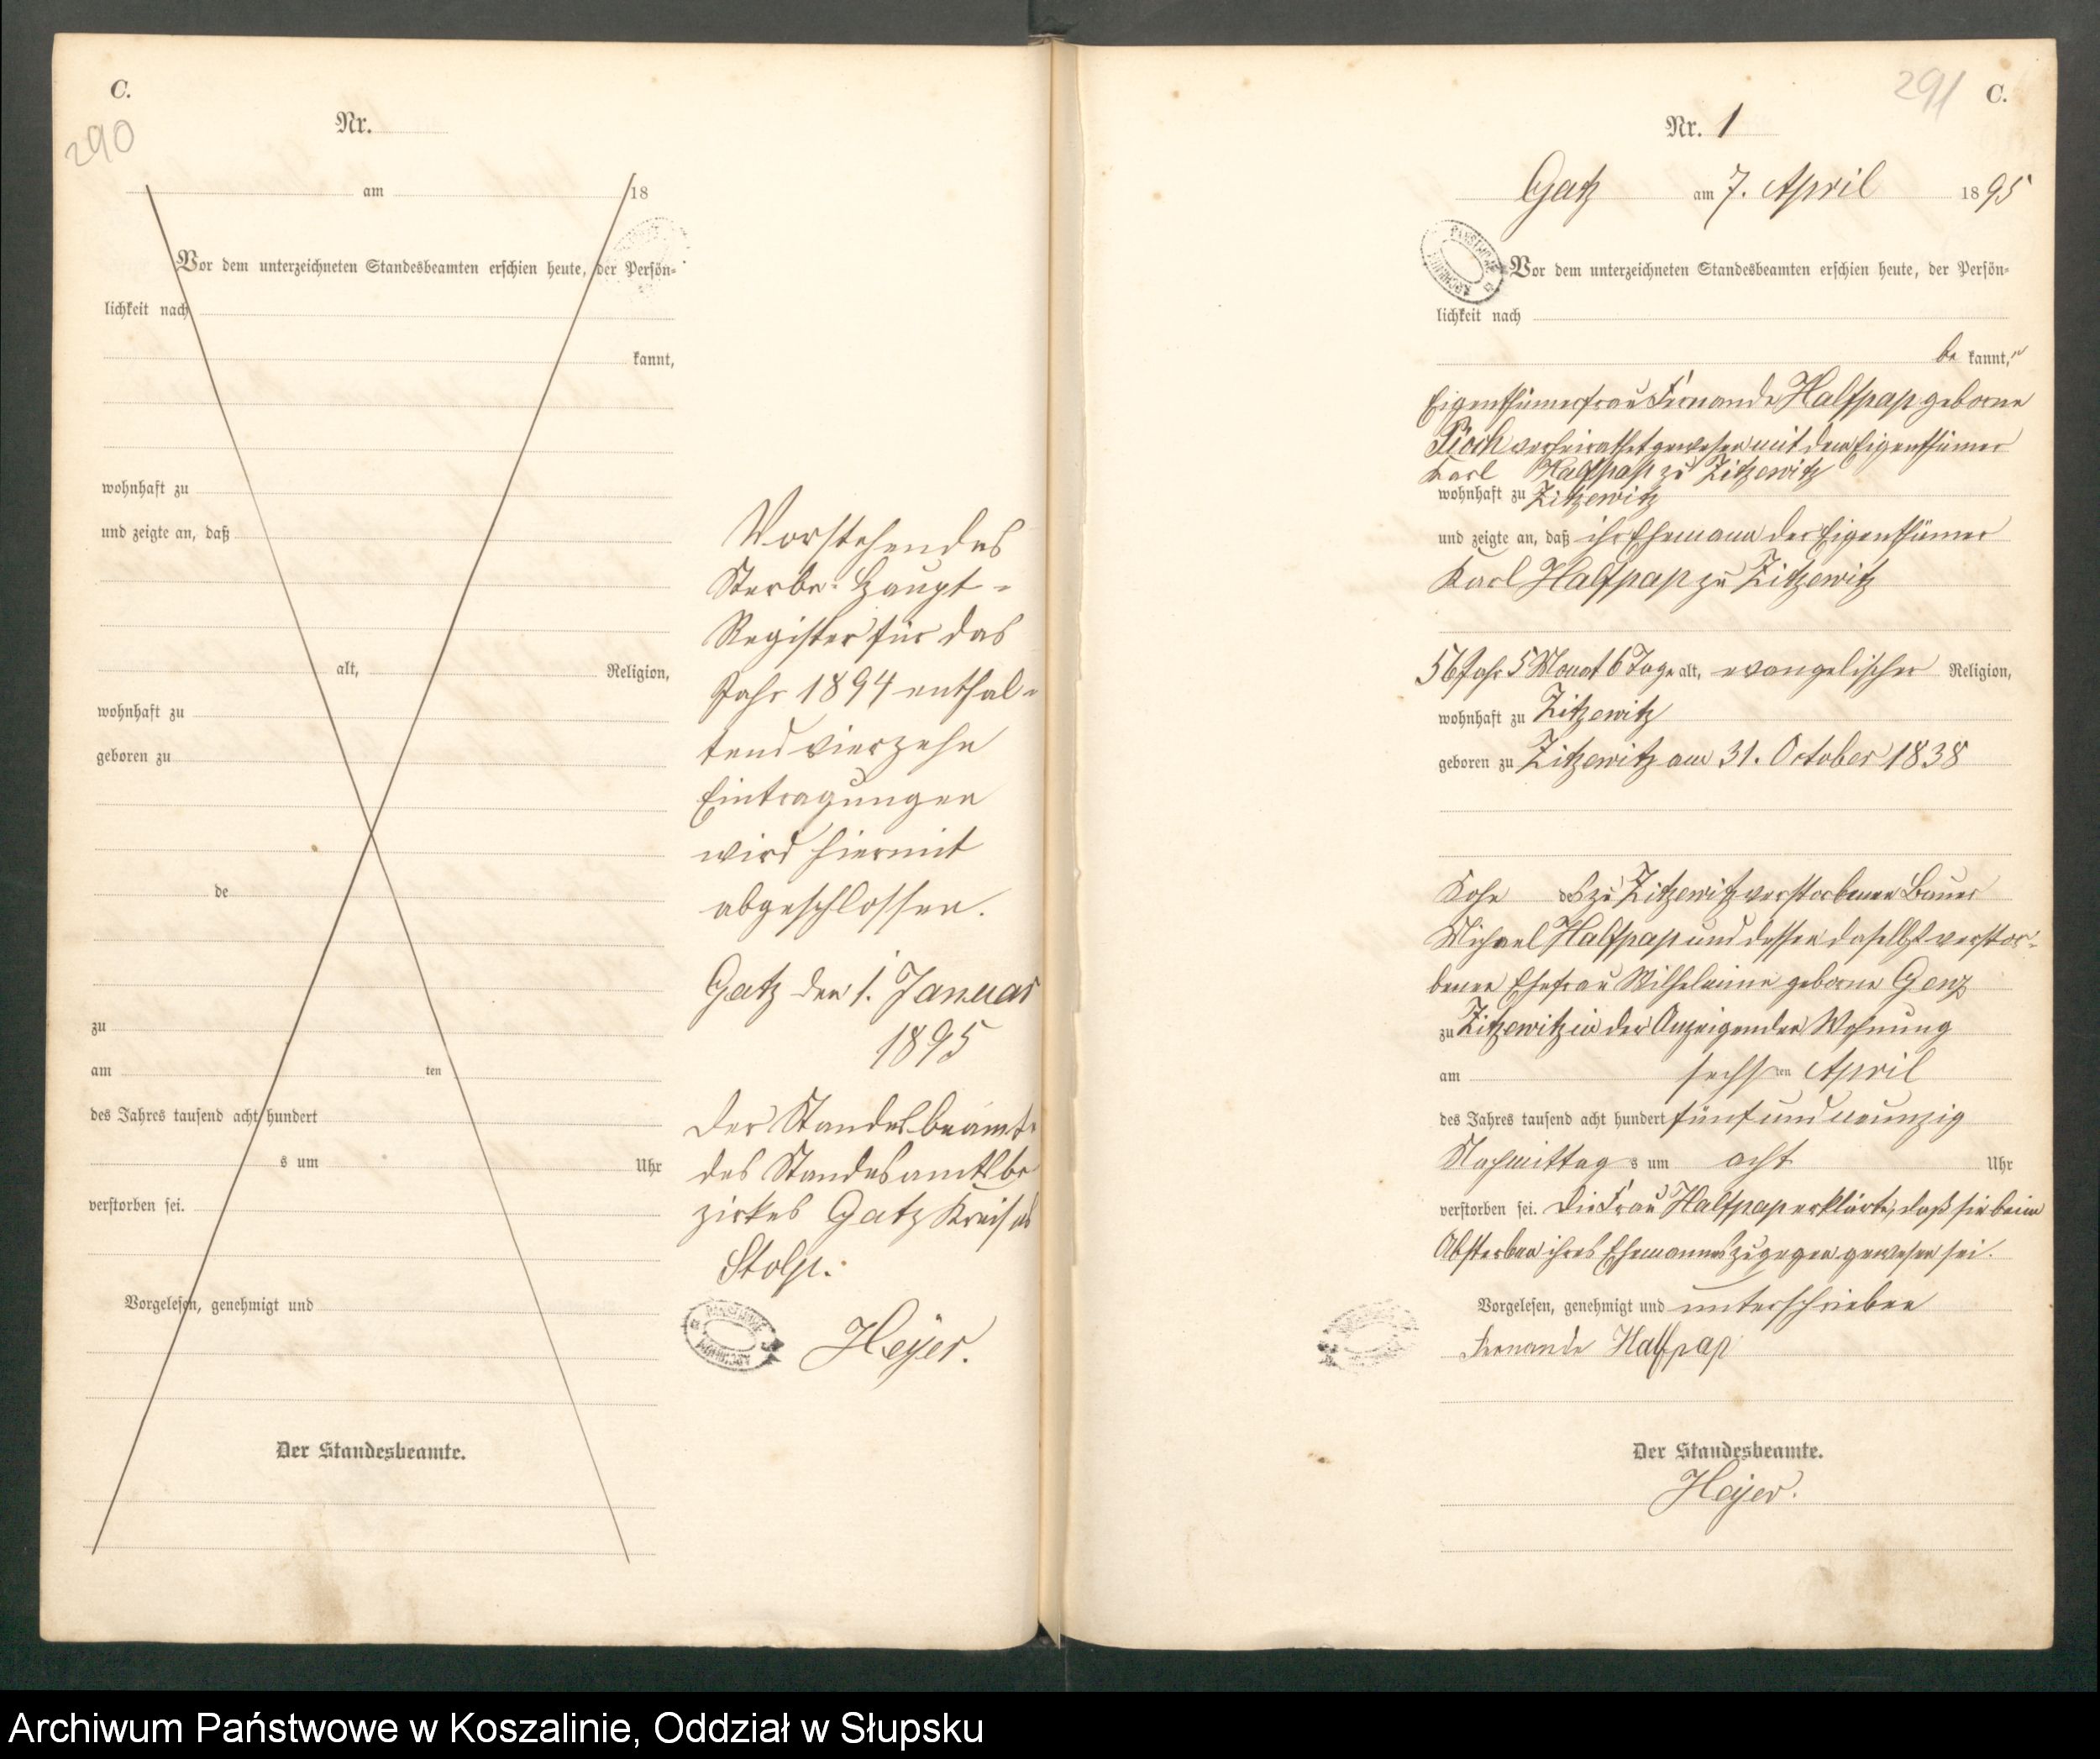 C.
290
Nr.
am 18
Vor dem unterzeichneten Standesbeamten erschien heute, der Persön=
lichkeit nach
kannt,
wohnhaft zu
und zeigte an, daß
alt, Religion,
wohnhaft zu
geboren zu
de
zu
am ten
des Jahres tausend acht hundert
s um Uhr
verstorben sei.
Vorgelesen, genehmigt und
Der Standesbeamte.
Vorstehendes
Sterbe-Haupt-
Register für das
Jahr 1894 enthal-
tend vierzehn
Eintragungen
wird hiermit
abgeschlossen.
Gatz den 1. Januar
1895
Der Standesbeamte
des Standesamtsbe
zirkes Gatz Kreises
Stolp.
Heyer.
291 C.
Nr. 1
Gatz am 7. April 1895
Vor dem unterzeichneten Standesbeamten erschien heute, der Persön=
lichkeit nach
be kannt,
Eigenthümerfrau Fernande Halfpap geborne
verheirathet gewesen mit dem Eigenthümer
Karl Halfpap zu Zitzewitz
wohnhaft zu Zitzewitz
und zeigte an, daß ihr Ehemann der Eigenthümer
Karl Halfpap zu Zitzewitz
56 Jahr 5 Monat 6 Tage alt, evangelischer Religion,
wohnhaft zu Zitzewitz
geboren zu Zitzewitz am 31. October 1838
Sohn des zu Zitzewitz verstorbenen Bauer
Michael Halfpap und dessen daselbst verstor-
benen Ehefrau Wilhelmine geborne Genz
zu Zitzewitz in der Anzeigenden Wohnung
am sechsten April
des Jahres tausend acht hundert fünf und neunzig
Nachmittag s um acht Uhr
verstorben sei. Die Frau Halfpap erklärte, daß sie beim
Absterben ihres Ehemannes zugegen gewesen sei.
Vorgelesen, genehmigt und unterschrieben
Fernande Halfpap
Der Standesbeamte.
Heyer.
Archiwum Państwowe w Koszalinie, Oddział w Słupsku